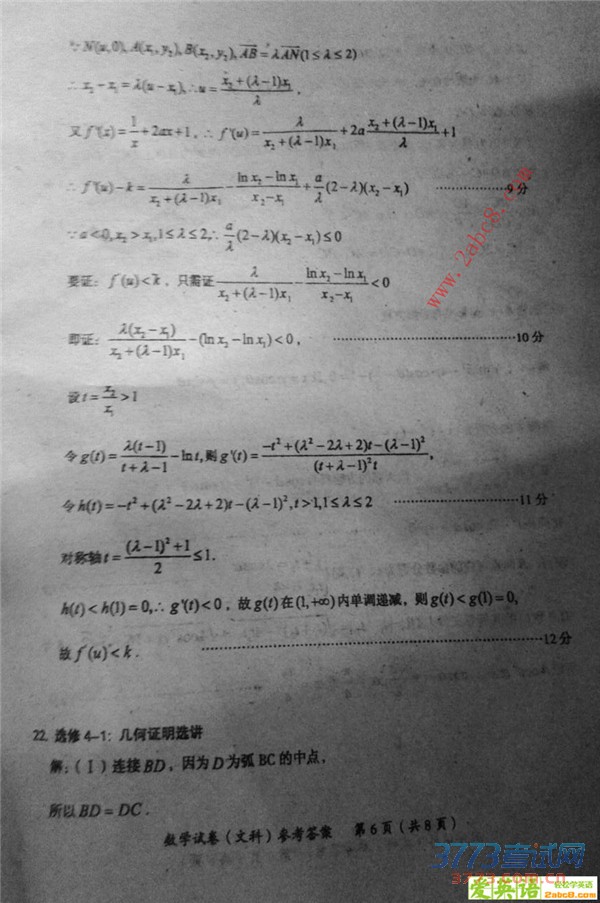 ∵N(u,0), A(x₁,y₂), B(x₂,y₂), \overline{AB} = λ\overline{AN}(1≤λ≤2)
∴x₂−x₁=λ(u−x₁),∴u=\frac{x₂+(λ−1)x₁}{λ}.
又f'(x)=\frac{1}{x}+2ax+1,∴f'(u)=\frac{λ}{x₂+(λ−1)x₁}+2a\frac{x₂+(λ−1)x₁}{λ}+1
∴f'(u)−k=\frac{λ}{x₂+(λ−1)x₁}−\frac{ln x₂−ln x₁}{x₂−x₁}+\frac{a}{λ}(2−λ)(x₂−x₁) ……………9分
∵a<0,x₂>x₁,1≤λ≤2,∴\frac{a}{λ}(2−λ)(x₂−x₁)≤0
要证: f'(u)<k, 只需证\frac{λ}{x₂+(λ−1)x₁}−\frac{ln x₂−ln x₁}{x₂−x₁}<0
www.2abc8.com
即证: \frac{λ(x₂−x₁)}{x₂+(λ−1)x₁}−(ln x₂−ln x₁)<0, ……………10分
设t=\frac{x₂}{x₁}>1
令g(t)=\frac{λ(t−1)}{t+λ−1}−ln t,则g'(t)=\frac{−t²+(λ²−2λ+2)t−(λ−1)²}{(t+λ−1)²t},
令h(t)=−t²+(λ²−2λ+2)t−(λ−1)²,t>1,1≤λ≤2 ……………11分
对称轴t=\frac{(λ−1)²+1}{2}≤1.
h(t)<h(1)=0,∴g'(t)<0, 故g(t)在(1,+∞)内单调递减, 则g(t)<g(1)=0,
故f'(u)<k. ……………12分
22. 选修4−1: 几何证明选讲
解:(Ⅰ)连接BD, 因为D为弧BC的中点,
所以BD=DC.
数学试卷(文科)参考答案 第6页(共8页)
3773考试网
爱英语 轻松学英语
2abc8.com